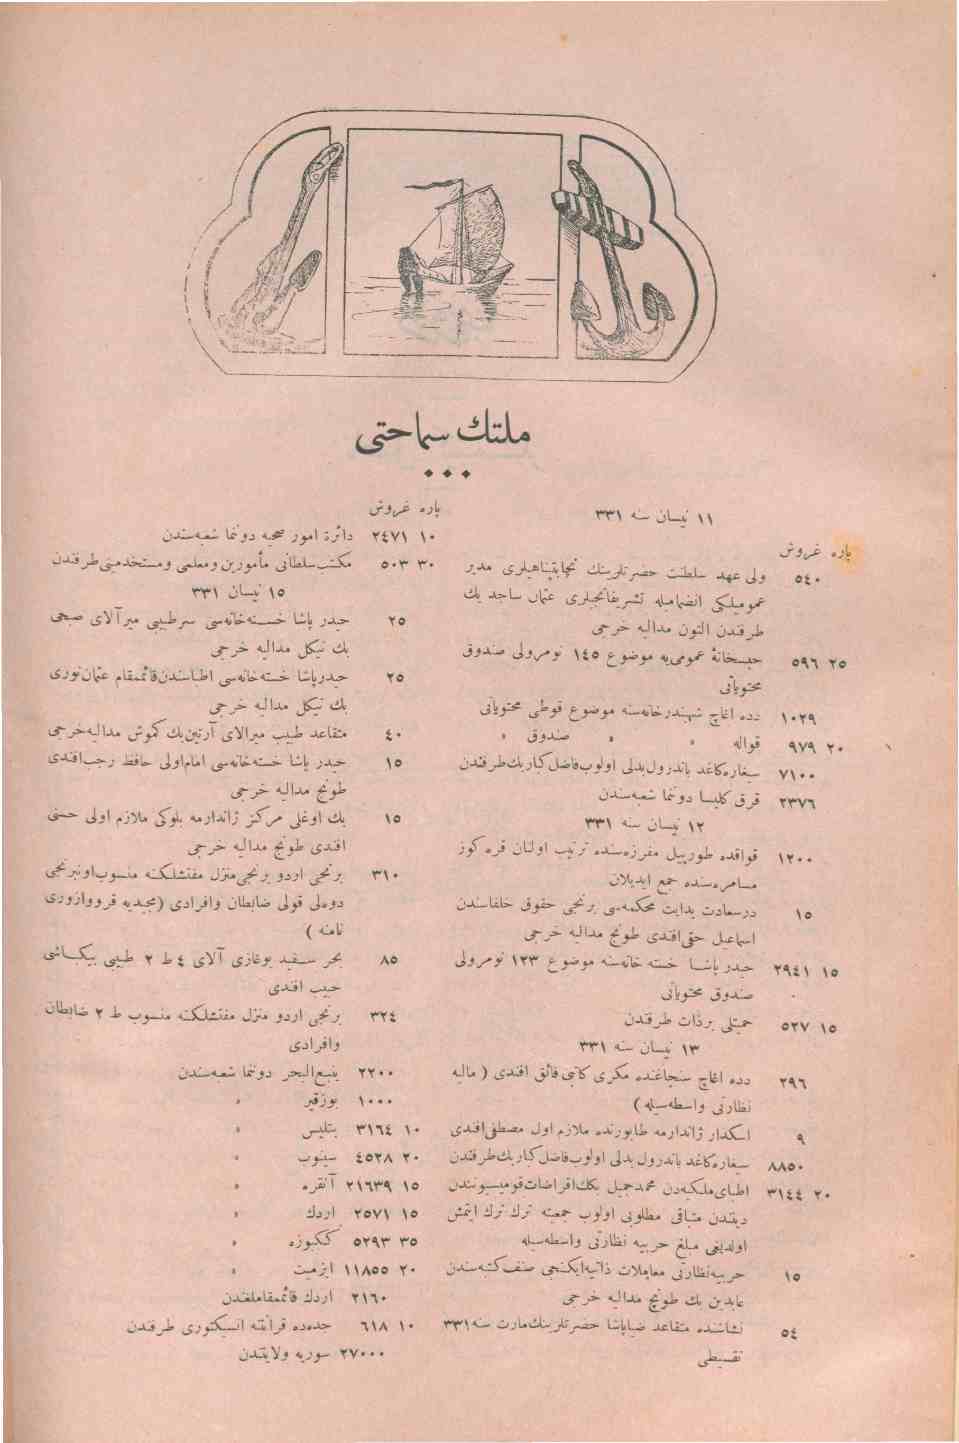 ملتك سماحتی
١١ نیسان سنه ٣٣١
پاره غروش
٥٤٠ ولی عهد سلطنت حضرتلرینك نجابتپناهیلری مدیر
عمومیلكی انضمامیله تشریفاتجیلری عثمان ساجد بك
طرفندن التون مدالیه خرجی
٢٥ ٥٩٦ حبسخانهٔ عمومی‌یه موضوع ١٤٥ نومرولی صندوق
محتویاتی
١٠٢٩ دده اغاچ شهبندرخانه‌سنه موضوع قوطی محتویاتی
٢٠ ٩٧٩ قواله » » صندوق »
٧١٠٠ سیغاره‌كاغد باندرول‌بدلی اولوب‌فاضل‌كبار بك‌طرفندن
٢٣٧٦ قرق كلیسا دوننما شعبه‌سندن
١٢ نیسان سنه ٣٣١
١٢٠٠ قواقده طورپیل مفرزه‌سنده ترتیب اولنان قره كوز
مسامره‌سنده جمع ایدیلان
١٥ درسعادت بدایت محكمه‌سی برنجی حقوق خلفاسندن
اسماعیل حقی‌افندی طونج مدالیه خرجی
١٥ ٢٩٤١ حیدر پاشا خسته خانه‌سنه موضوع ١٢٣ نومرولی
صندوق محتویاتی
١٥ ٥٢٧ حمیتلی برذات طرفندن
١٣ نیسان سنه ٣٣١
٢٩٦ دده اغاچ سنجاغنده مكری كاتبی فائق افندی ( مالیه
نظارتی واسطه‌سیله )
٩ اسكدار ژاندارمه طابورنده ملازم اول مصطفی‌افندی
٨٨٥٠ سیغاره‌كاغد باندرول بدلی اولوب‌فاضل‌كبار بك‌طرفندن
٢٠ ٣١٤٤ اطبای‌ملكیه‌دن محمدجمیل بكك‌اقراضات‌قومیسیونندن
دیندن متباقی مطلوبی اولوب جمعیته ترك ایتمش
اولدیغی مبلغ حربیه نظارتی واسطه‌سیله
١٥ حربیه‌نظارتی معاملات ذاتیه‌ایكنجی صنف‌كتبه‌سندن
عابدین بك طونج مدالیه خرجی
٥٤ نشاشنده متقاعد ضیاپاشا حضرتلرینك‌مارت سنه ٣٣١
تقسیطی
پاره غروش
١٠ ٢٤٧١ دائرهٔ امور صحیه دوننما شعبه‌سندن
٣٠ ٥٠٣ مكتب‌سلطانی مأمورین ومعلمی ومستخدمینی‌طرفندن
١٥ نیسان ٣٣١
٢٥ حیدر پاشا خسته‌خانه‌سی سرطبیبی میرآلای صبحی
بك نیكل مدالیه خرجی
٢٥ حیدرپاشا خسته‌خانه‌سی اطباسندن‌قائممقام عثمان‌نوری
بك نیكل مدالیه خرجی
٤٠ متقاعد طبیب میرالای آرتین‌بك كموش مدالیه‌خرجی
١٥ حیدر پاشا خسته‌خانه‌سی امام‌اولی حافظ رجب‌افندی
طونج مدالیه خرجی
١٥ بك اوغلی مركز ژاندارمه بلوكی ملازم اولی حسنی
افندی طونج مدالیه خرجی
٣١٠ برنجی اردو برنجی‌منزل مفتشلكنه منسوب‌اونبرنجی
دوه‌لی قولی ضابطان وافرادی (مجیدیه قرووازوری
نامنه )
٨٥ بحر سفید بوغازی آلای ٤ ط ٢ طبیبی بیكباشی
حبیب افندی
٣٢٤ برنجی اردو منزل مفتشلكنه منسوب ط ٢ ضابطان
وافرادی
٢٢٠٠ ینبع‌البحر دوننما شعبه‌سندن
١٠٠٠ بوزقیر »
١٠ ٣١٦٤ بتلیس »
٢٠ ٤٥٢٨ سینوب »
١٥ ٢١٦٣٩ آنقره »
١٥ ٢٥٧١ اردك »
٣٥ ٥٢٩٣ ككبوزه »
٢٠ ١١٨٥٥ ازمیت »
٢١٦٠ اردك قائممقاملغندن
١٠ ٦١٨ جده‌ده قرانتنه انسپكتوری طرفندن
٢٧٠٠٠ سوریه ولایتندن